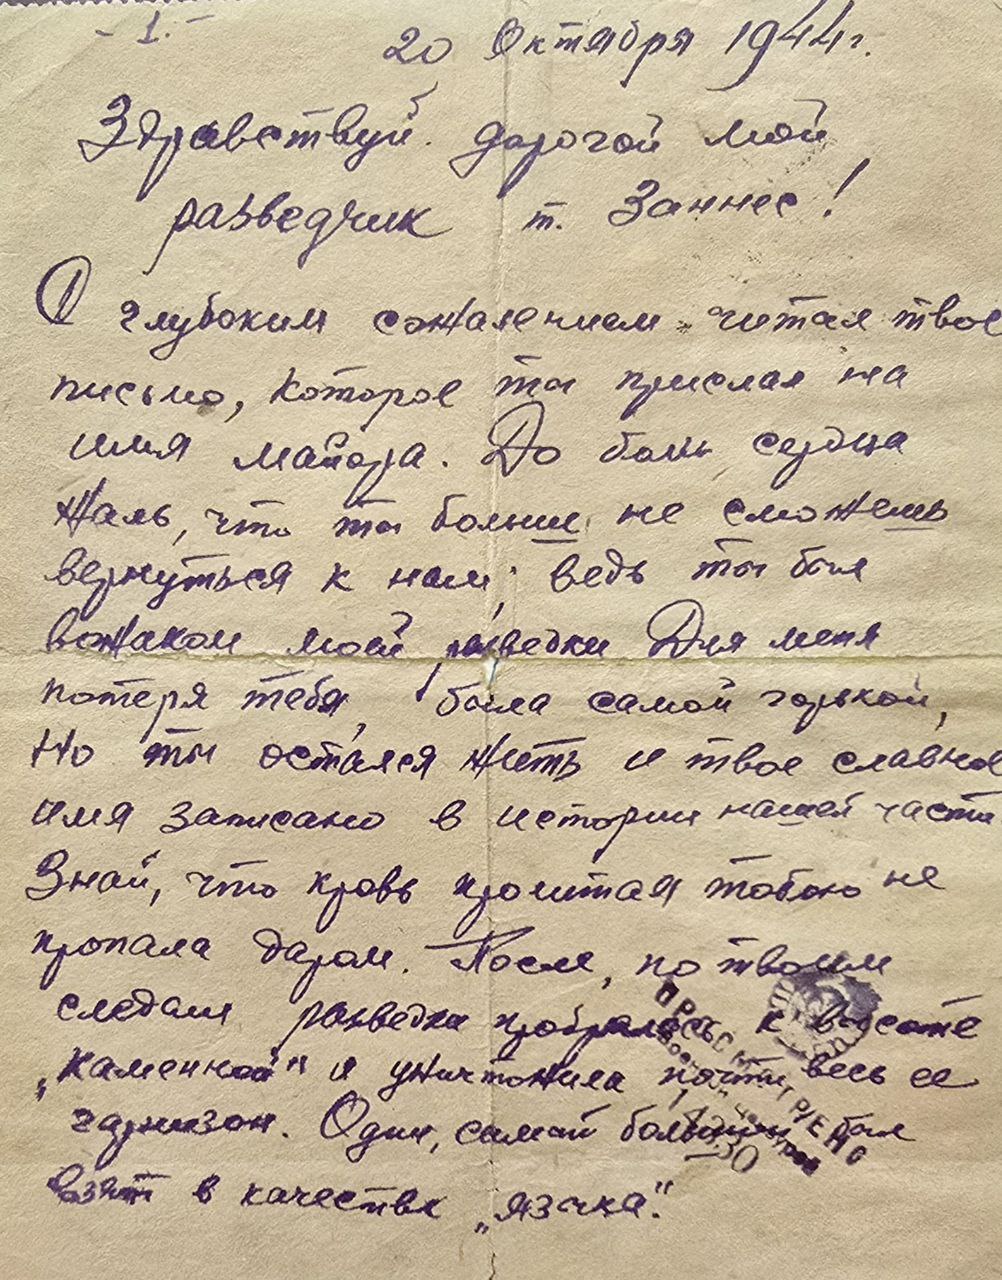 - 1. -
20 Октября 1944 г.
Здравствуй дорогой мой
разведчик т. Заннес!
С глубоким сожалением читал твое
письмо, которое ты прислал на
имя майора. До боли сердца
жаль, что ты больше не сможешь
вернуться к нам, ведь ты был
вожаком моей разведки Для меня
потеря тебя, была самой горькой,
Но ты остался жить и твое славное
имя записано в истории нашей части
Знай, что кровь пролитая тобою не
пропала даром. После, по твоим
следам разведка пробралась к высоте
„Каменной" и уничтожила почти весь ее
гарнизон. Один, самый большой был
взят в качестве „язычка".
ПРОСМОТРЕНО
Военной Цензурой